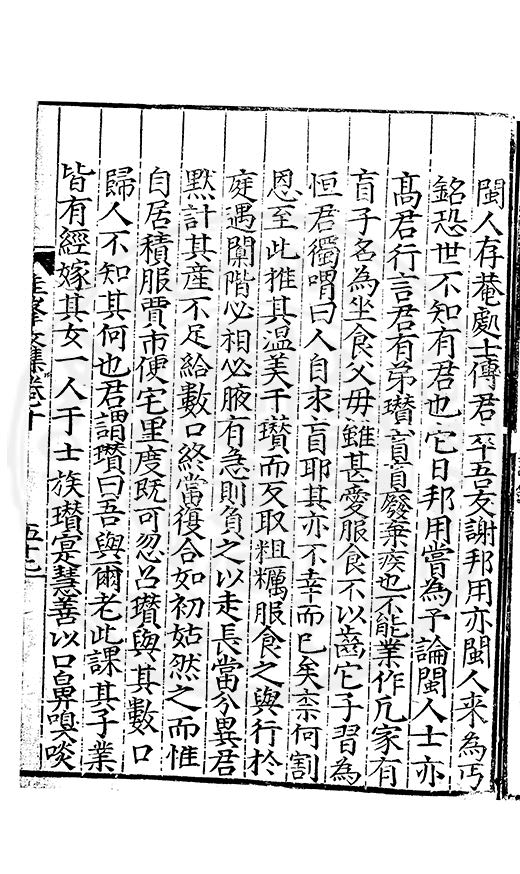 閩人存菴處士傳君卒吾友謝邦用亦閩人来為丐
銘恐世不知有君也它日邦用嘗為予論閩人士亦
髙君行言君有弟瓚盲盲廢棄疾也不能業作凡家有
盲子名為坐食父母雖甚愛服食不以齒它子習為
恒君獨喟曰人自求盲耶其亦不幸而已矣柰何割
恩至此推其温美干瓚而反取粗糲服食之與行於
庭遇閾階必相必腋有急則負之以走長當分異君
默計其産不足給數口終當復合如初姑然之而惟
自居積服賈市便宅里度既可忽呂瓚與其數口
歸人不知其何也君謂瓚曰吾與爾老此課其子業
皆有經嫁其女一人于士族瓚寔慧善以口鼻嗅啖
文集卷十
五十七